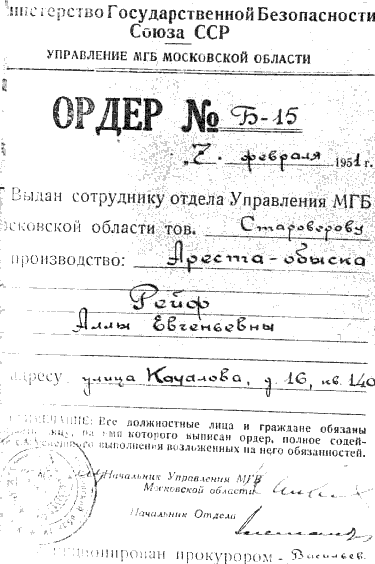 Министерство Государственной Безопасности
Союза ССР
УПРАВЛЕНИЕ МГБ МОСКОВСКОЙ ОБЛАСТИ
ОРДЕР № Б-15
„7” февраля 1951 г.
Выдан сотруднику отдела Управления МГБ
осковской области тов. Староверову
производство: Ареста-обыска
Рейф
Аллы Евгеньевны
адресу улица Качалова, д. 16, кв. 140
ПРИМЕЧАНИЕ: Все должностные лица и граждане обязаны
лицу, на имя которого выписан ордер, полное содей-
успешного выполнения возложенных на него обязанностей.
Начальник Управления МГБ
Московской области
Начальник Отдела
санкционирован прокурором - Васильев.